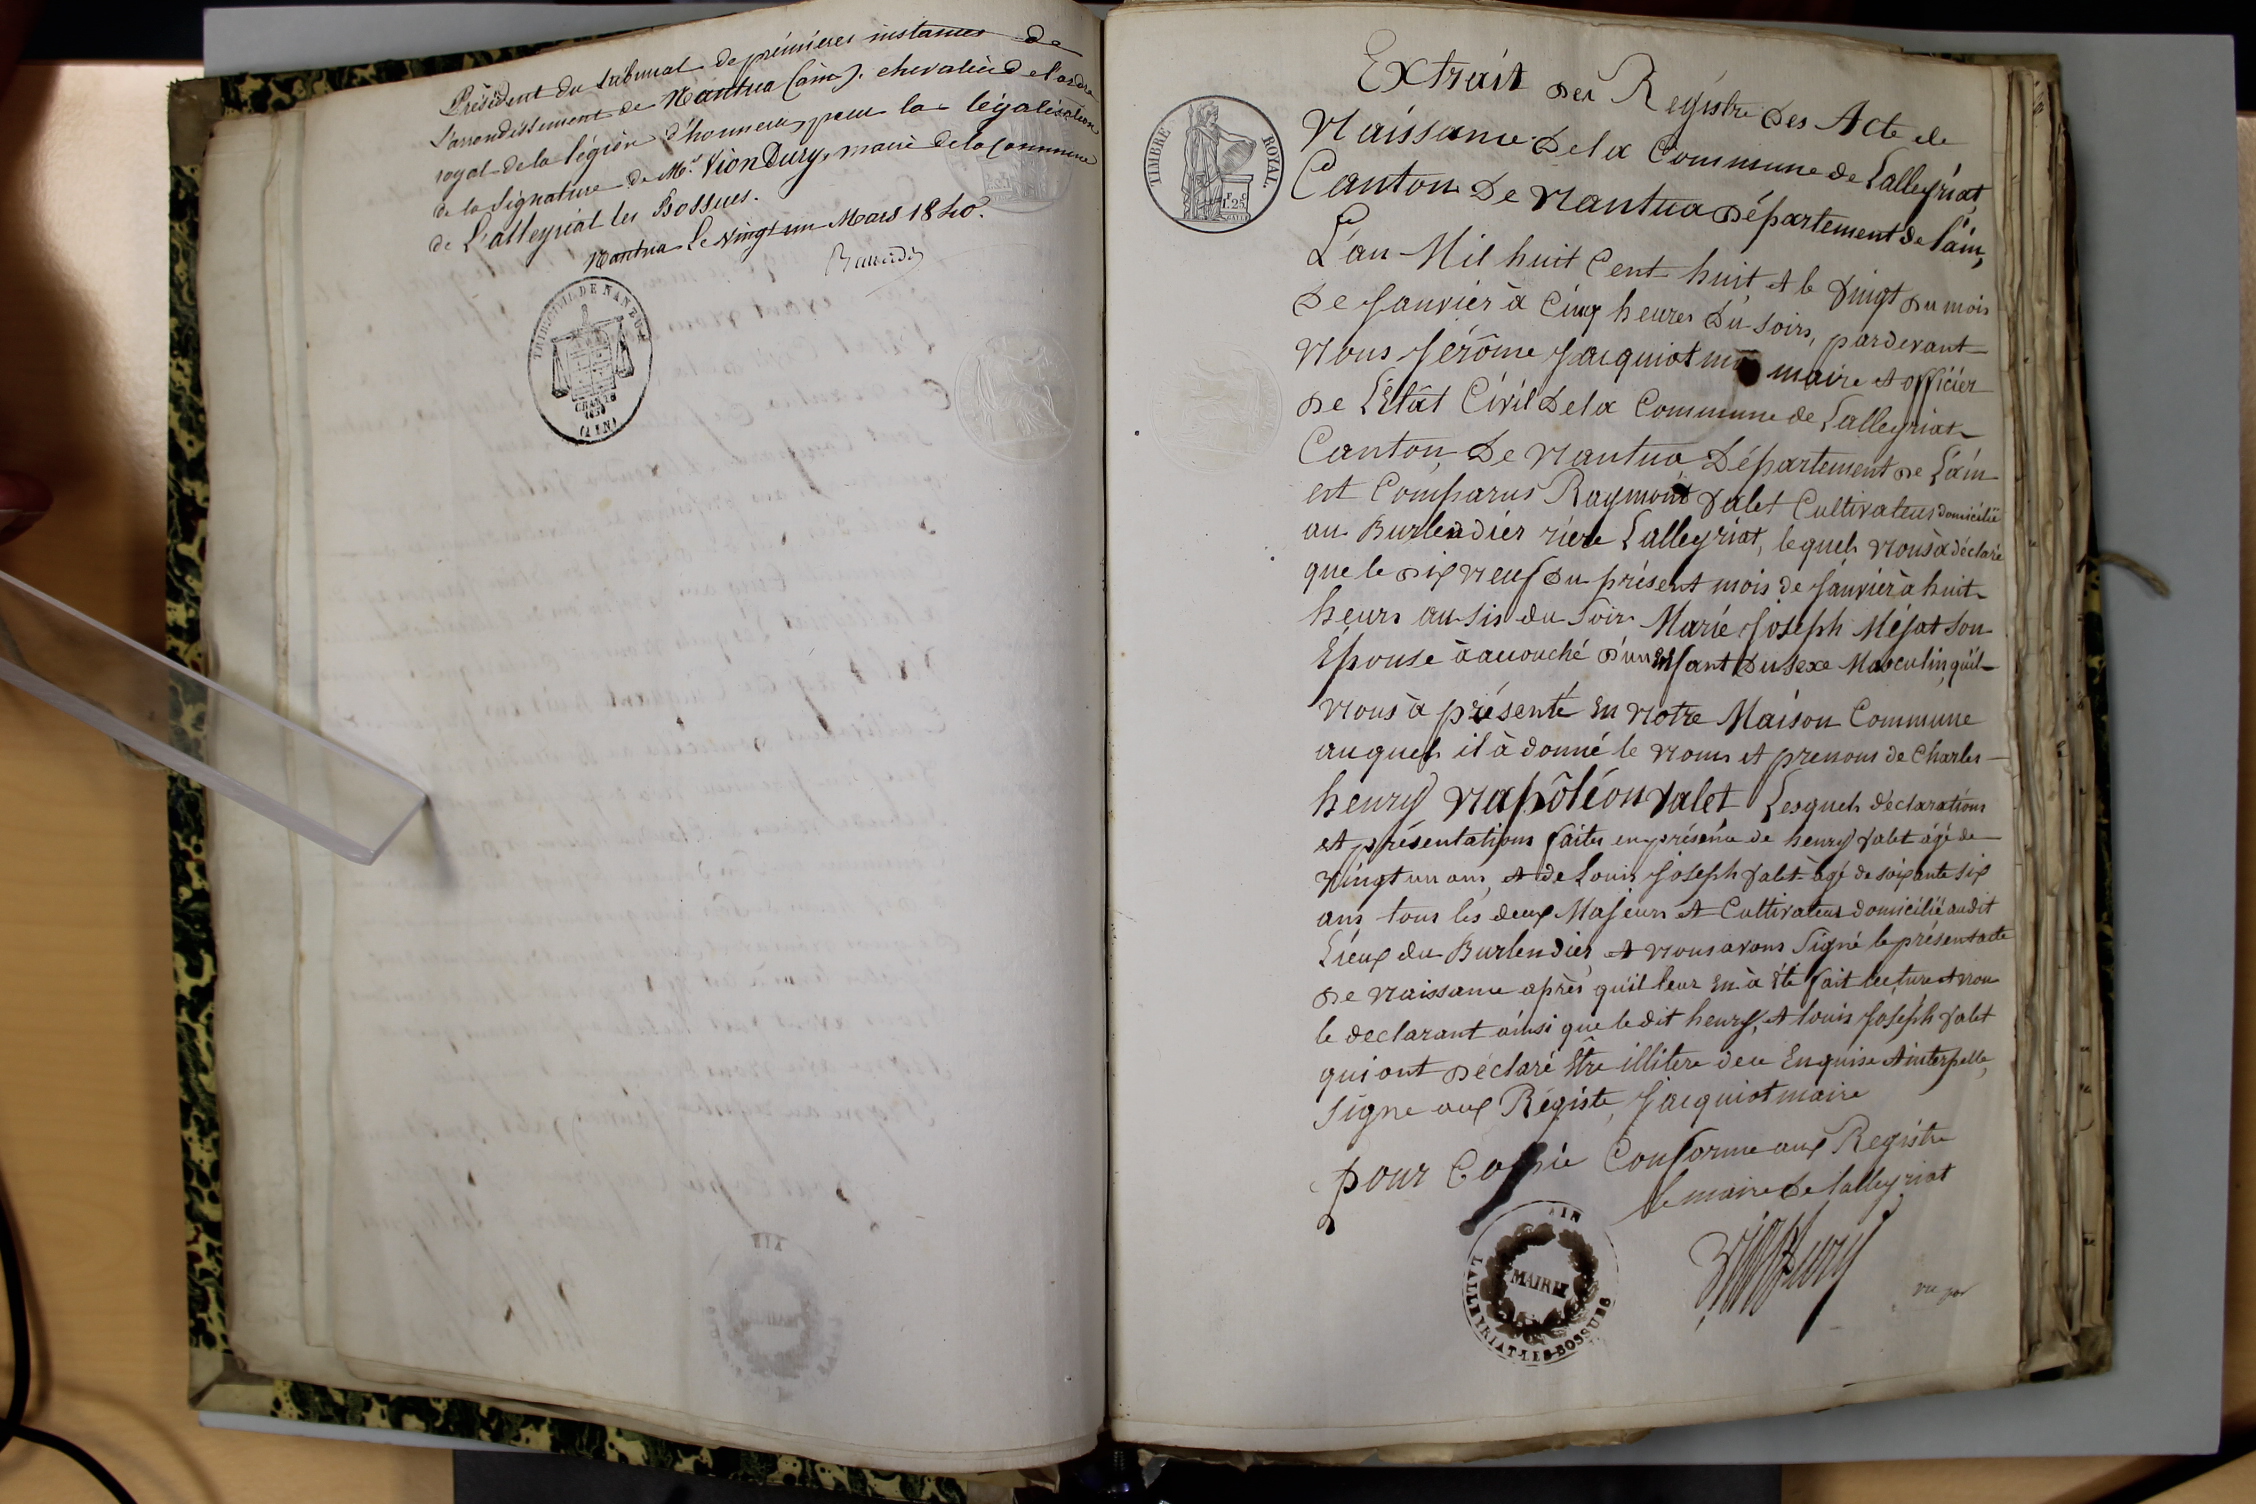 Président du tribunal de premières instances de
l'arrondissement de Nantua (ain). chevalier de l'ordre
royal de la légion d'honneur, pour la légalisation
de la signature de Mr. Vion Dury, maire de la Commune
de L'alleyriat les Bossues.
Nantua Le vingt un Mars 1840.
TRIB. CIVIL DE NANTUA
CHARTE
1830
(AIN)
TIMBRE ROYAL.
1F. 25C
Extrait des Régistre Des Acte de
Naissance De la Commune de Lalleyriat,
Canton De Nantua Département de l'ain,
L'an Mil huit Cent huit et le vingt du mois
De Janvier à Cinq heures Du soirs, pardevant
Nous Jérôme Jacquiot maire et officier
De L'Etât Civil De la Commune de Lalleyriat
Canton De Nantua Département de L'ain
est Comparus Raymont Valet Cultivateur domicilié
au Burlendier rière Lalleyriat, lequels Nous à déclaré
que le Dix Neuf Du présent mois de Janvier à huit
heurs du Soir Marie Joseph Méjat Son
Epouse à accouché D'un Enfant Du sexe Masculin, qu'il
Nous à présenté En Notre Maison Commune
auquels il à donné le Nom et prenoms de Charles
henry Napôléon Valet Lesquels déclarations
et présentations faites en présence de henry Valet âgé de
Vingt un ans, et de Louis Joseph Valet âgé de soixante six
ans tous les deux Majeurs et Cultivateur domicilié audit
Lieux du Burlendier et Nous avons Signé le présent acte
De Naissance après qu'il leur En à été fait lecture et non
le declarant ainsi que ledit henry, et louis Joseph Valet
qui ont Déclaré Etre illitere dece Enquise et interpelle,
Signe aux Régiste, Jacquiot maire
pour Copie Conforme aux Registre
le maire De lalleyriat
Vion Dury
AIN
MAIRIE
LALLEYRIAT-LES-BOSSUES
vu par